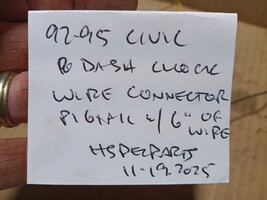 92-95 CIVIC
DASH CLOCK
WIRE CONNECTOR
PIGTAIL w/ 6" OF
WIRE
HSDEPARTS
11-19-2025